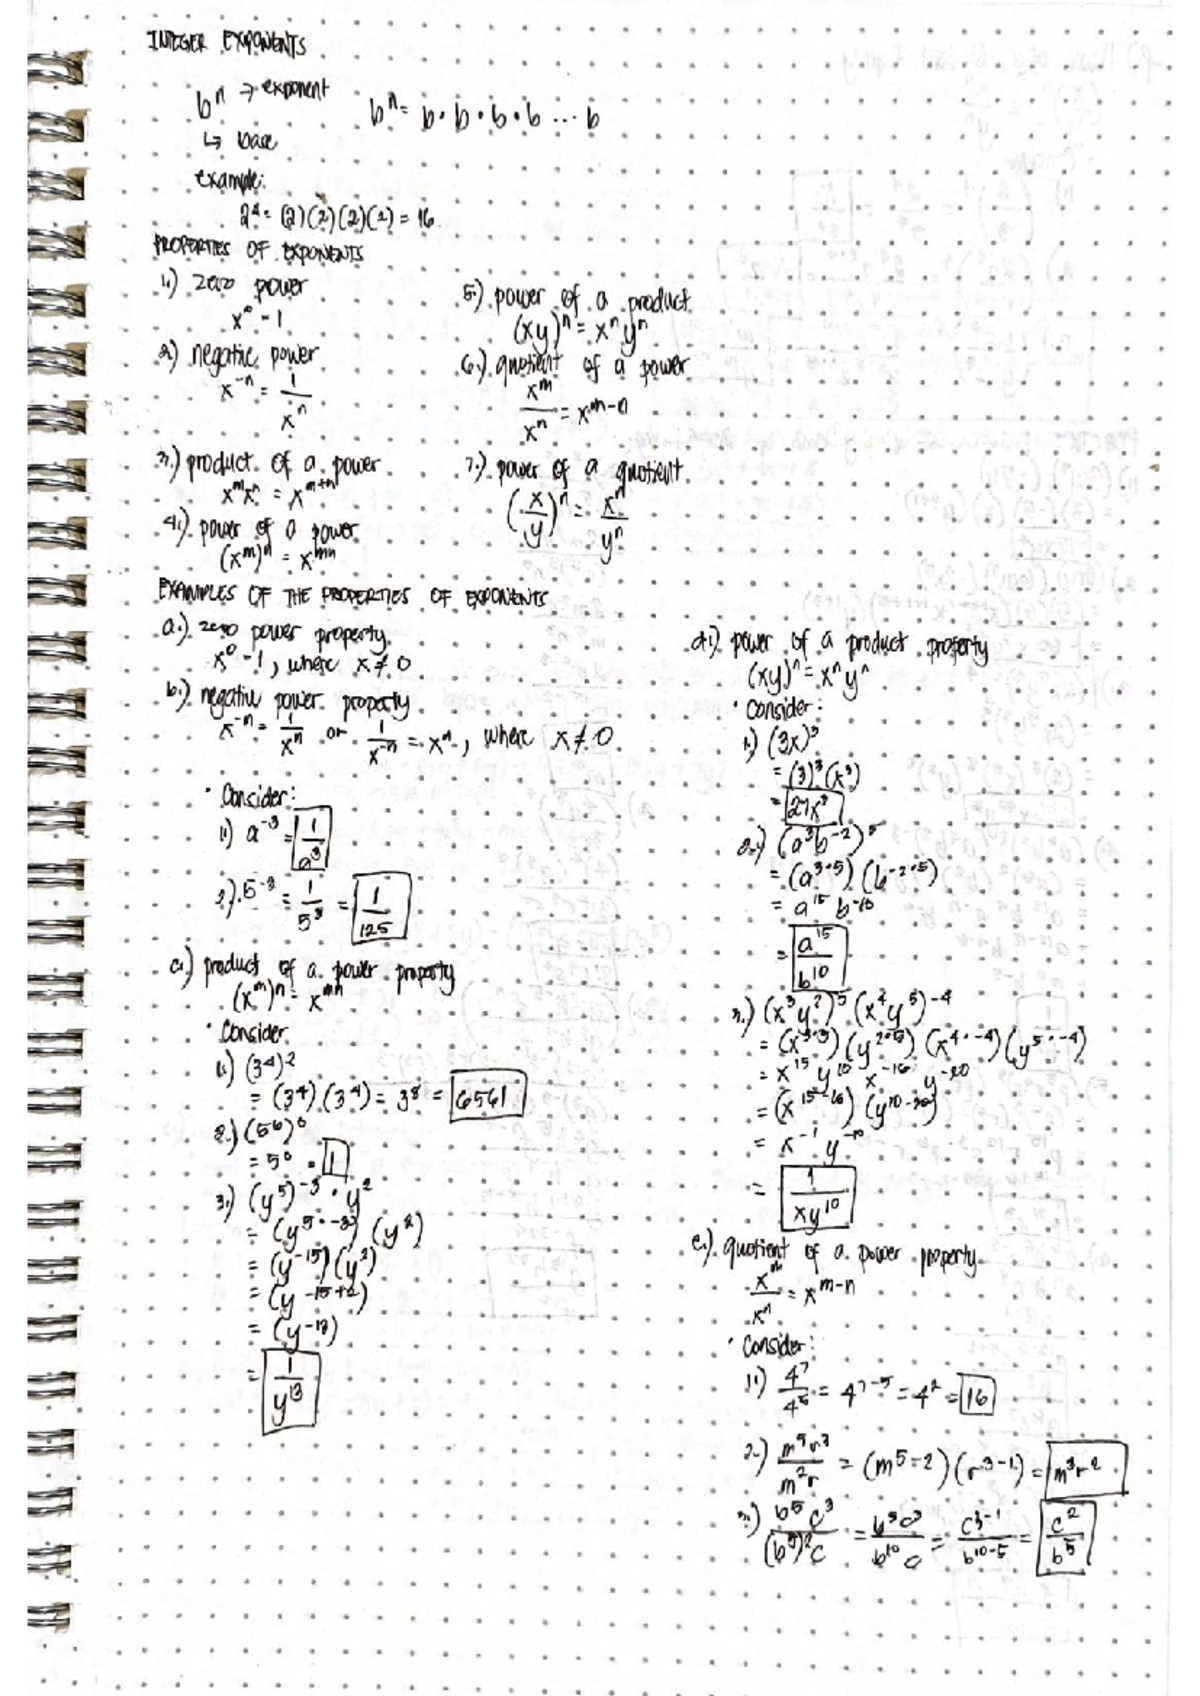 INTEGER EXPONENTS
bⁿ → exponent
↳ base
bⁿ = b · b · b · b ... b
example:
2⁴ = (2)(2)(2)(2) = 16
PROPERTIES OF EXPONENTS
1.) zero power
x⁰ = 1
2.) negative power
x⁻ⁿ = 1/xⁿ
3.) product of a power
xᵐxⁿ = xᵐ⁺ⁿ
4.) power of a power
(xᵐ)ⁿ = xᵐⁿ
5.) power of a product
(xy)ⁿ = xⁿyⁿ
6.) quotient of a power
xᵐ/xⁿ = xᵐ⁻ⁿ
7.) power of a quotient
(x/y)ⁿ = xⁿ/yⁿ
EXAMPLES OF THE PROPERTIES OF EXPONENTS
a.) zero power property
x⁰ = 1, where x ≠ 0
b.) negative power property
x⁻ⁿ = 1/xⁿ or 1/x⁻ⁿ = xⁿ, where x ≠ 0
• Consider:
1.) a⁻³ = 1/a³
2.) 5⁻³ = 1/5³ = 1/125
c.) product of a power property
(xᵐ)ⁿ = xᵐⁿ
• Consider
1.) (3⁴)²
= (3⁴)(3⁴) = 3⁸ = 6561
2.) (5⁶)⁰
= 5⁰ = 1
3.) (y⁵)⁻³ · y²
= (y⁵·⁻³)(y²)
= (y⁻¹⁵)(y²)
= (y⁻¹⁵⁺²)
= (y⁻¹³)
= 1/y¹³
d.) power of a product property
(xy)ⁿ = xⁿyⁿ
• Consider:
1.) (3x)³
= (3)³(x³)
= 27x³
2.) (a³b⁻²)⁵
= (a³·⁵)(b⁻²·⁵)
= a¹⁵b⁻¹⁰
= a¹⁵/b¹⁰
3.) (x³y²)⁵(x⁴y⁵)⁻⁴
= (x³·⁵)(y²·⁵)(x⁴·⁻⁴)(y⁵·⁻⁴)
= x¹⁵ y¹⁰ x⁻¹⁶ y⁻²⁰
= (x¹⁵⁻¹⁶)(y¹⁰⁻²⁰)
= x⁻¹ y⁻¹⁰
= 1/xy¹⁰
e.) quotient of a power property
xᵐ/xⁿ = xᵐ⁻ⁿ
• Consider:
1.) 4⁷/4⁵ = 4⁷⁻⁵ = 4² = 16
2.) m⁵r³/m²r = (m⁵⁻²)(r³⁻¹) = m³r²
3.) b⁵c³/(b⁵)²c = b⁵c³/b¹⁰c = c³⁻¹/b¹⁰⁻⁵ = c²/b⁵